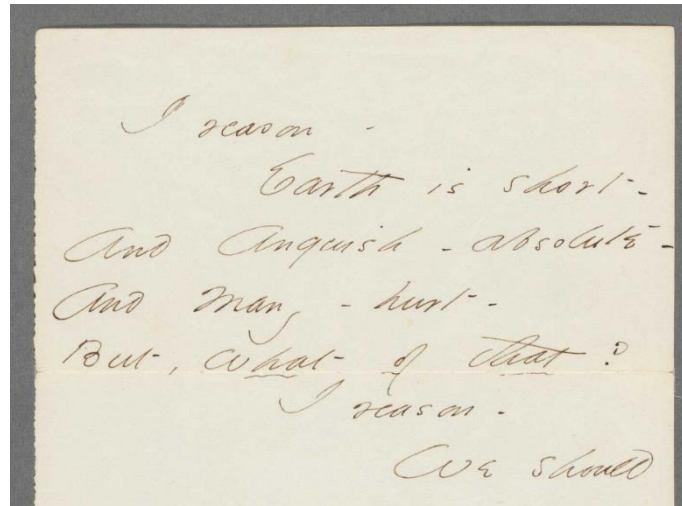 I reason -
Earth is short -
And Anguish - absolute -
And many - hurt -
But, what of that?
I reason -
We should